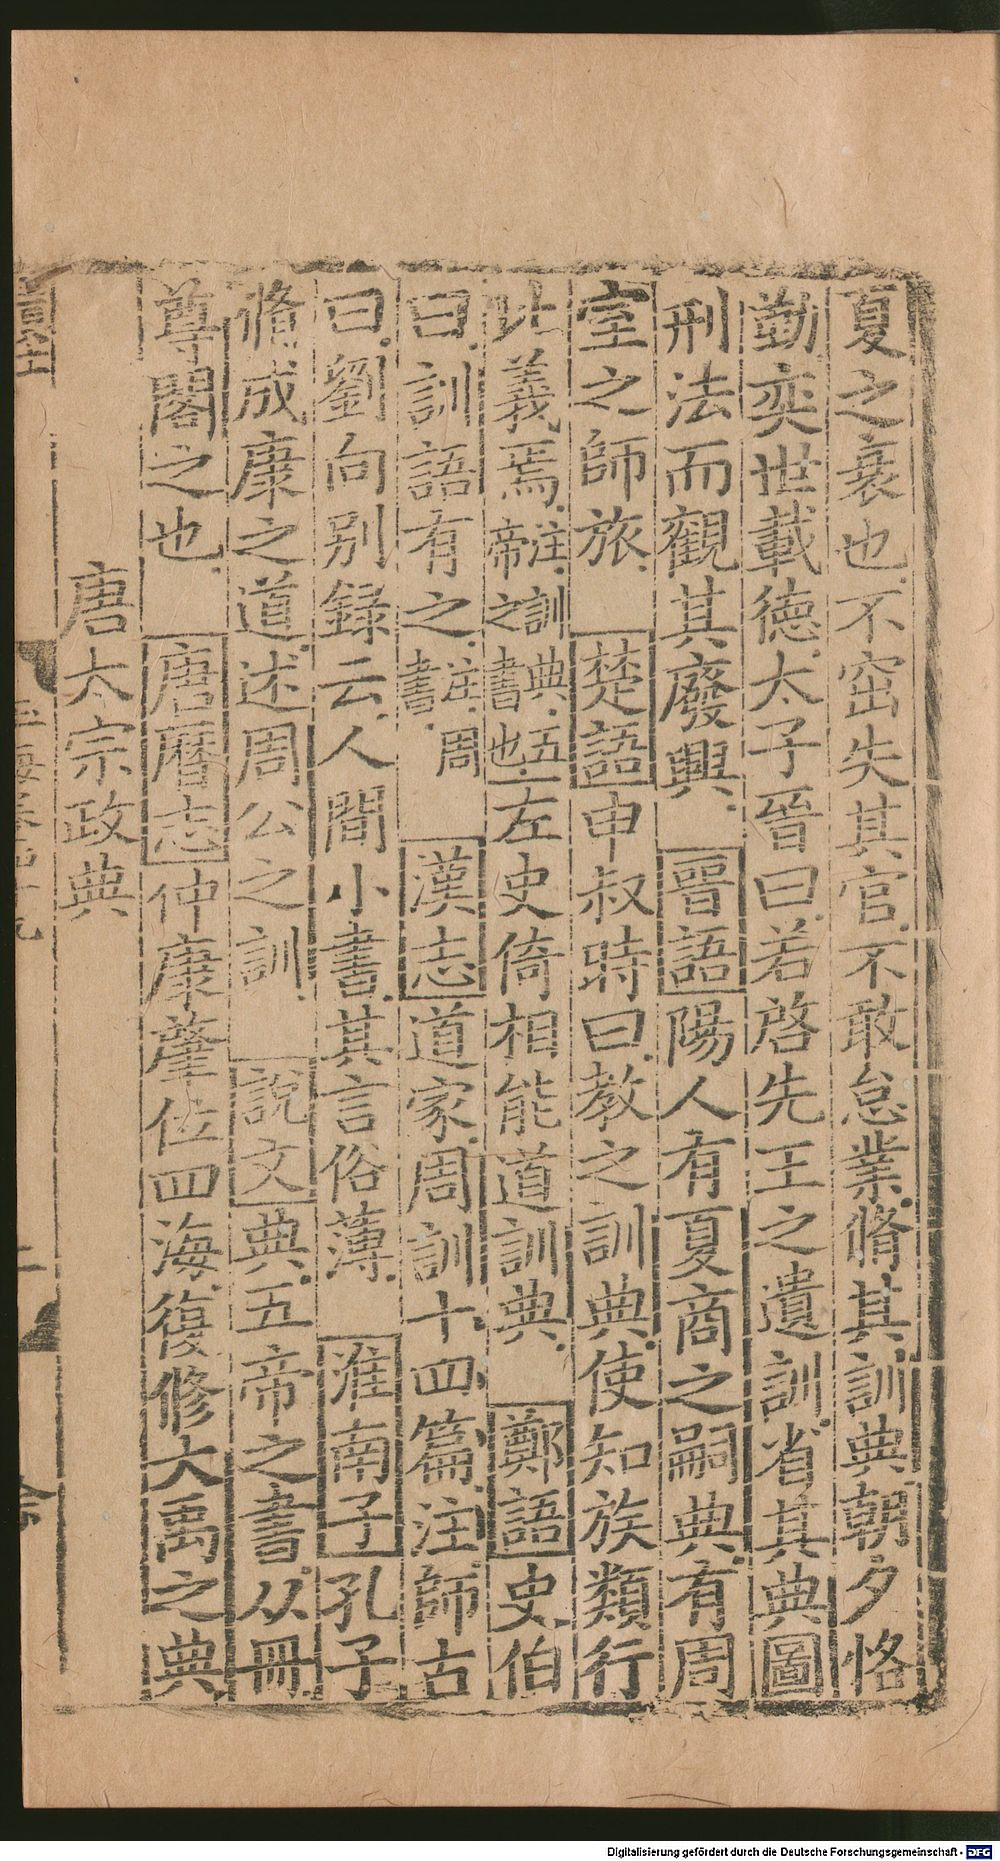 夏之衰也不窋失其官不敢怠業脩其訓典朝夕恪
勤奕世載德太子晉曰若啓先王之遺訓省其典圖
刑法而觀其廢興晉語陽人有夏商之嗣典有周
室之師旅楚語申叔時曰教之訓典使知族類行
比義焉注訓典五帝之書也左史倚相能道訓典鄭語史伯
曰訓語有之注周書漢志道家周訓十四篇注師古
曰劉向別録云人間小書其言俗薄淮南子孔子
脩成康之道述周公之訓說文典五帝之書从冊
尊閣之也唐曆志仲康肇位四海復修大禹之典
唐太宗政典
Digitalisierung gefördert durch die Deutsche Forschungsgemeinschaft - DFG